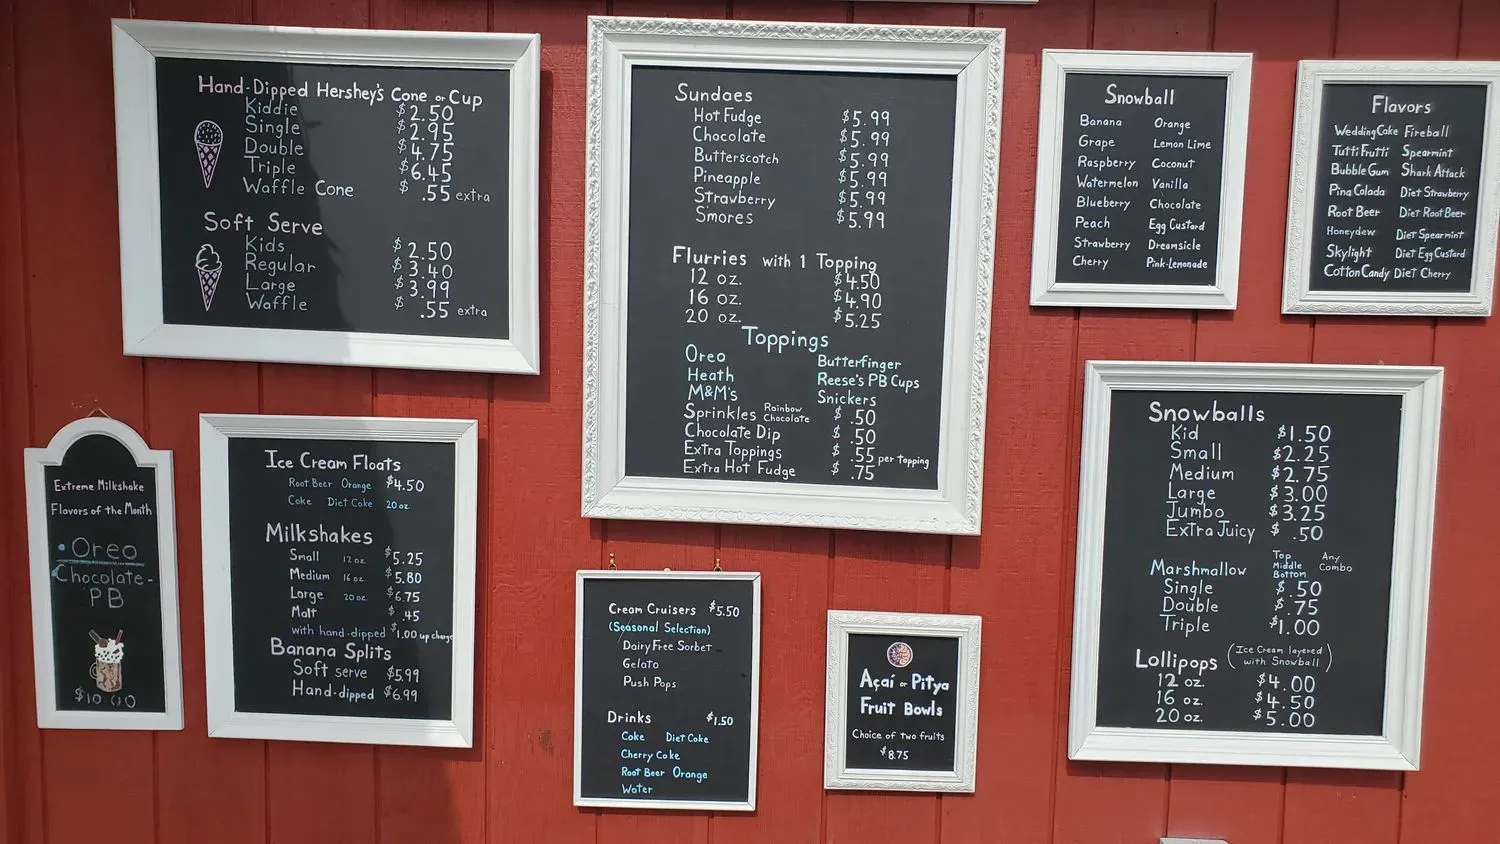 Hand-Dipped Hershey's Cone or Cup
Kiddie $2.50
Single $2.95
Double $4.75
Triple $6.45
Waffle Cone $.55 extra
Soft Serve
Kids $2.50
Regular $3.40
Large $3.99
Waffle $.55 extra
Sundaes
Hot Fudge $5.99
Chocolate $5.99
Butterscotch $5.99
Pineapple $5.99
Strawberry $5.99
S'mores $5.99
Flurries with 1 Topping
12 oz. $4.50
16 oz. $4.90
20 oz. $5.25
Toppings
Oreo Butterfinger
Heath Reese's PB Cups
M&M's Snickers
Sprinkles Rainbow Chocolate $.50
Chocolate Dip $.50
Extra Toppings $.55 per topping
Extra Hot Fudge $.75
Snowball
Banana Orange
Grape Lemon Lime
Raspberry Coconut
Watermelon Vanilla
Blueberry Chocolate
Peach Egg Custard
Strawberry Dreamsicle
Cherry Pink-Lemonade
Flavors
Wedding Cake Fireball
Tutti Frutti Spearmint
Bubble Gum Shark Attack
Pina Colada Diet Strawberry
Root Beer Diet Root Beer
Honeydew Diet Spearmint
Skylight Diet Egg Custard
Cotton Candy Diet Cherry
Extreme Milkshake
Flavors of the Month
• Oreo
• Chocolate-
PB
$10.00
Ice Cream Floats
Root Beer Orange $4.50
Coke Diet Coke 20 oz.
Milkshakes
Small 12 oz. $5.25
Medium 16 oz. $5.80
Large 20 oz. $6.75
Malt $.45
with hand-dipped $1.00 up charge
Banana Splits
Soft serve $5.99
Hand-dipped $6.99
Cream Cruisers $5.50
(Seasonal Selection)
Dairy Free Sorbet
Gelato
Push Pops
Drinks $1.50
Coke Diet Coke
Cherry Coke
Root Beer Orange
Water
Açaí or Pitya
Fruit Bowls
Choice of two fruits
$8.75
Snowballs
Kid $1.50
Small $2.25
Medium $2.75
Large $3.00
Jumbo $3.25
Extra Juicy $.50
Marshmallow Top Middle Bottom Any Combo
Single $.50
Double $.75
Triple $1.00
Lollipops (Ice Cream layered with Snowball)
12 oz. $4.00
16 oz. $4.50
20 oz. $5.00